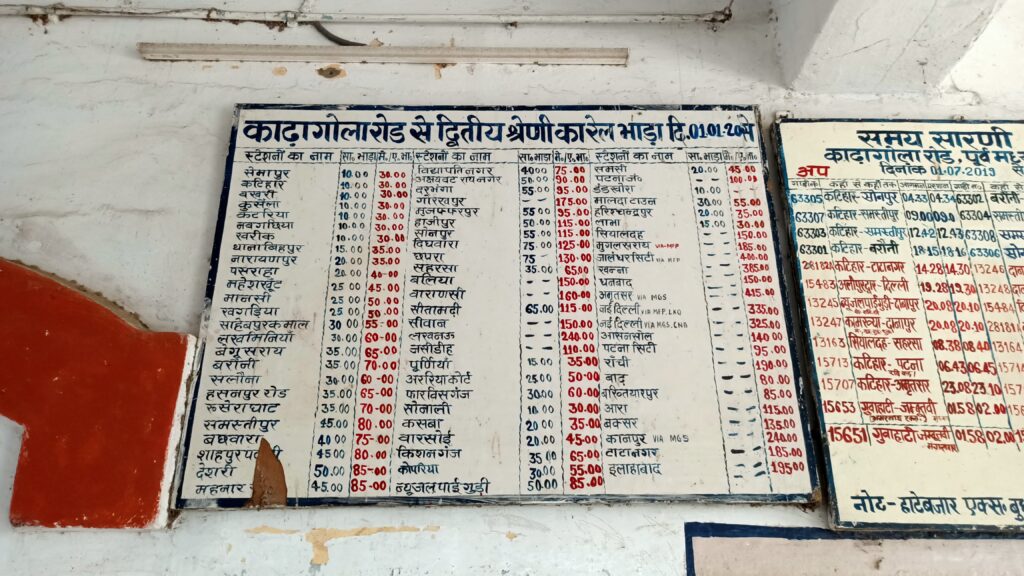 काढ़ागोला रोड से द्वितीय श्रेणी का रेल भाड़ा दि. 01.01.20
स्टेशनों का नाम सा० भाड़ा मे./ए. भा.
सेमापुर 10.00 30.00
कटिहार 10.00 30.00
बखरी 10.00 30.00
कुर्सेला 10.00 30.00
कटरिया 10.00 30.00
नवगछिया 10.00 30.00
खरीक 10.00 30.00
थाना बिहपुर 15.00 35.00
नारायणपुर 20.00 35.00
पसराहा 20.00 40.00
महेशखूंट 25.00 45.00
मानसी 25.00 50.00
खगड़िया 25.00 50.00
साहेबपुर कमाल 30.00 55.00
लखमिनिया 30.00 60.00
बेगूसराय 35.00 65.00
बरौनी 35.00 70.00
सलौना 30.00 60.00
हसनपुर रोड 35.00 65.00
रूसेरा घाट 35.00 70.00
समस्तीपुर 45.00 80.00
बछवारा 40.00 75.00
शाहपुर 45.00 80.00
देशरी 50.00 85.00
महनार 45.00 85.00
स्टेशनों का नाम सा० भाड़ा मे./ए. भा.
विद्यापतिनगर 40.00 75.00
अक्षयवट रायनगर 50.00 90.00
दरभंगा 55.00 95.00
गोरखपुर 175.00
मुजफ्फरपुर 55.00 95.00
हाजीपुर 50.00 95.00
सोनपुर 55.00 115.00
दिघवारा 75.00 125.00
छपरा 75 130.00
सहरसा 35.00 65.00
बलिया 150.00
वाराणसी 160.00
सीतामढी 65.00 115.00
सीवान 150.00
लखनऊ 240.00
जसीडीह 110.00
पूर्णिया 15.00 35.00
अररिया कोर्ट 25.00 50.00
फारबिसगंज 30.00 60.00
सोनाली 10.00 30.00
कसबा 20.00 35.00
बारसोई 20.00 45.00
किशनगंज 35.00 65.00
कोपरिया 30.00 55.00
न्यूजलपाईगुड़ी 50.00 85.00
स्टेशनों का नाम सा० भाड़ा
समसी 20.00 45.00
पटना जं० 100.00
डंडखोरा
मालदा टाउन 30.00 55.00
हरिश्चन्द्रपुर 20.00 35.00
गामा 15.00 30.00
सियालदह 150.00
मुगलसराय VIA MFP 185.00
जालंधर सिटी VIA MFP 400.00
खन्ना 385.00
धनबाद 150.00
अमृतसर VIA MGS 415.00
नई दिल्ली VIA MFP. LKO 335.00
नई दिल्ली VIA MGS. CNB 325.00
आसनसोल 140.00
पटना सिटी 95.00
राँची 190.00
बाढ़ 80.00
बख्तियारपुर 85.00
आरा 115.00
बक्सर 135.00
कानपुर VIA MGS 240.00
टाटानगर 185.00
इलाहाबाद 195.00
समय सारणी
काढ़ागोला रोड, पूर्व मध्
दिनांक 01.07.2019
अप
गाड़ी सं० कहाँ से कहाँ तक
63305 कटिहार-सोनपुर 04.33 04.34 63302 बरौनी
63307 कटिहार-समस्तीपुर 09.00 63304 समस्ती
63303 कटिहार-समस्तीपुर 12.42 12.43 63308 समस
63301 कटिहार-बरौनी 18.15 18.16 63306 सोन
28182 कटिहार-टाटानगर 14.28 14.30 13246
15483 अलीपुरद्वार-दिल्ली 19.28 19.30 13248
13245 न्यूजलपाईगुड़ी-दानापुर 20.08 20.10 15484
13247 कामाख्या-दानापुर 20.08 20.10 28181
13163 सियालदह-सहरसा 08.38 08.40
15713 कटिहार-पटना 06.43 06.45
15707 कटिहार-अमृतसर 23.08 23.10
15653 गुवाहाटी-जम्मूतवी 01.58 02.00
15651 गुवाहाटी-जम्मूतवी 01.58 02.00
नोट- हाटेबजार एक्स०